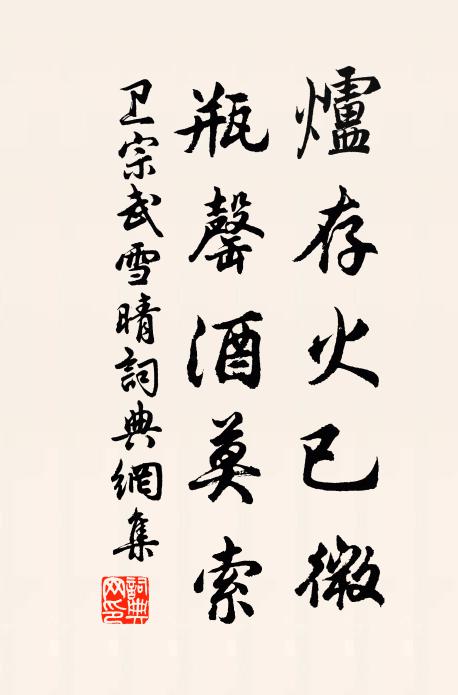 爐存火已微
瓶罄酒莫索
卫宗武雪晴詞典網集